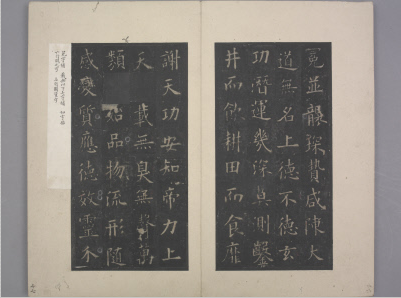 冕並襲琛贄咸陳大
道無名上德不德玄
功潛運幾深莫測鑿
井而飲耕田而食靡
謝天功安知帝力上
天載無臭無聲萬
類始品物流形隨
感變質應德效靈不